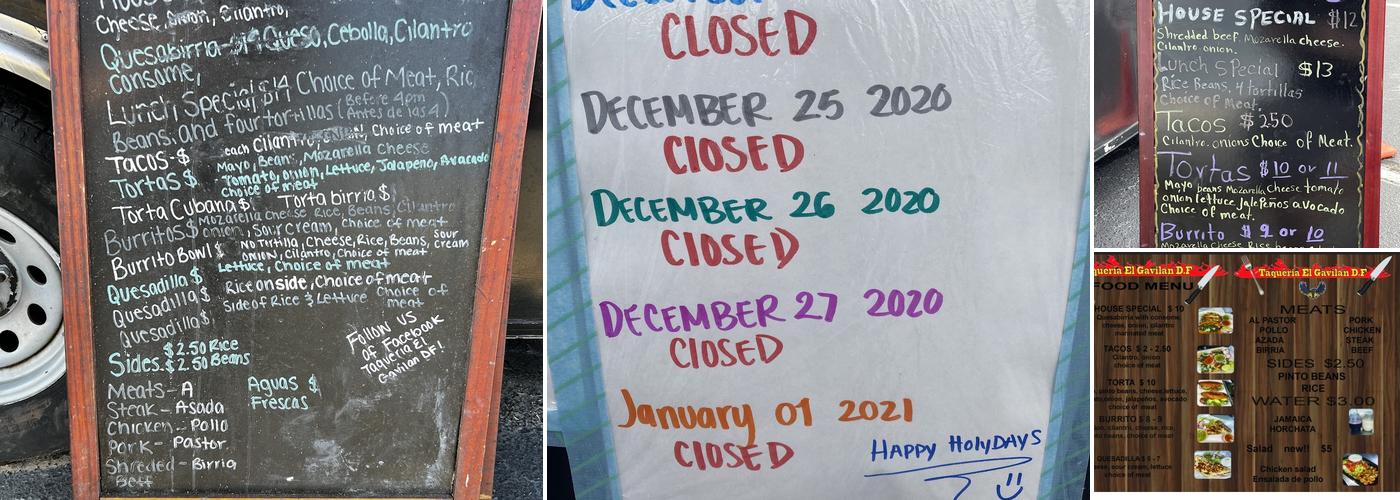 Cheese, Onion, Cilantro,
Quesabirria-$14 Queso, Cebolla, Cilantro
consome,
Lunch Special, $14 Choice of Meat, Ric
Beans, and four tortillas (Before 4pm
Antes de las 4)
TACOS-$ each Cilantro, ONION, Choice of meat
TORTAS $ Mayo, Beans, Mozarella Cheese
Tomato, onion, Lettuce, Jalapeno, Avacado
choice of meat
Torta Cubana $ Torta birria $
Burritos $ Mozarella Cheese Rice, Beans, Cilantro
onion, Sour Cream, Choice of meat
Burrito Bowl $ NO Tortilla, Cheese, Rice, Beans, Sour cream
ONION, Cilantro, Choice of meat
Quesadilla $ Lettuce, Choice of meat
Quesadilla $ Rice on side, Choice of meat
Quesadilla $ Side of Rice & Lettuce Choice of meat
Sides. $2.50 Rice
$2.50 Beans
FOLLOW US
of Facebook
Taqueria El
Gavilan DF!
Meats - A
Steak - Asada
Chicken - Pollo
Pork - Pastor.
Shreded - Birria
Beff
Aguas $
Frescas
CLOSED
DECEMBER 25 2020
ClOSED
DECEMBER 26 2020
CLOSED
DECEMBER 27 2020
CLOSED
January 01 2021
CLOSED
HAPPY HOlYDAYS
HOUSE SPECIAL $12
Shredded beef. Mozarella cheese.
Cilantro. onion.
Lunch Special $13
Rice Beans, 4 tortillas
Choice of Meat.
Tacos $250
Cilantro. onions Choice of Meat.
Tortas $10 or 11
Mayo beans Mozarella Cheese tomato
onion lettuce Jalepeños avocado
Choice of meat.
Burrito $ 9 or 10
Mozarella Cheese Rice beans
queria El Gavilan D.F
FOOD MENU
HOUSE SPECIAL $ 10
Quesabirria with consome
cheese, onion, cilantro
marinated meat
TACOS $ 2 - 2.50
Cilantro, onion
choice of meat
TORTA $ 10
pinto beans, cheese, lettuce,
onion, jalapeños, avocado
choice of meat
BURRITO $ 8 - 9
cilantro, cheese, rice,
beans, choice of meat
QUESADILLA $ 6 - 7
cheese, sour cream, lettuce
choice of meat
Taqueria El Gavilan D.F
MEATS
AL PASTOR PORK
POLLO CHICKEN
AZADA STEAK
BIRRIA BEEF
SIDES $2.50
PINTO BEANS
RICE
WATER $3.00
JAMAICA
HORCHATA
Salad new!! $5
Chicken salad
Ensalada de pollo